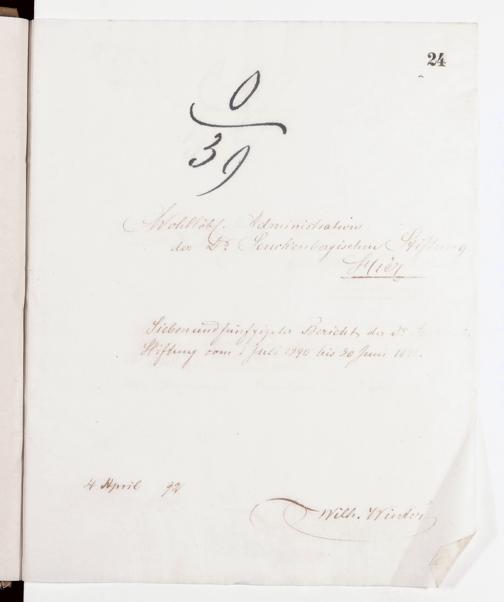 24
0
39
Wohllöbl. Administration
der Dr. Senckenbergischen Stiftung
Hier
Siebenundfünfzigster Bericht der Dr.
Stiftung vom 1 Juli 1890 bis 30 Juni
4 April 92
Wilh. Winter